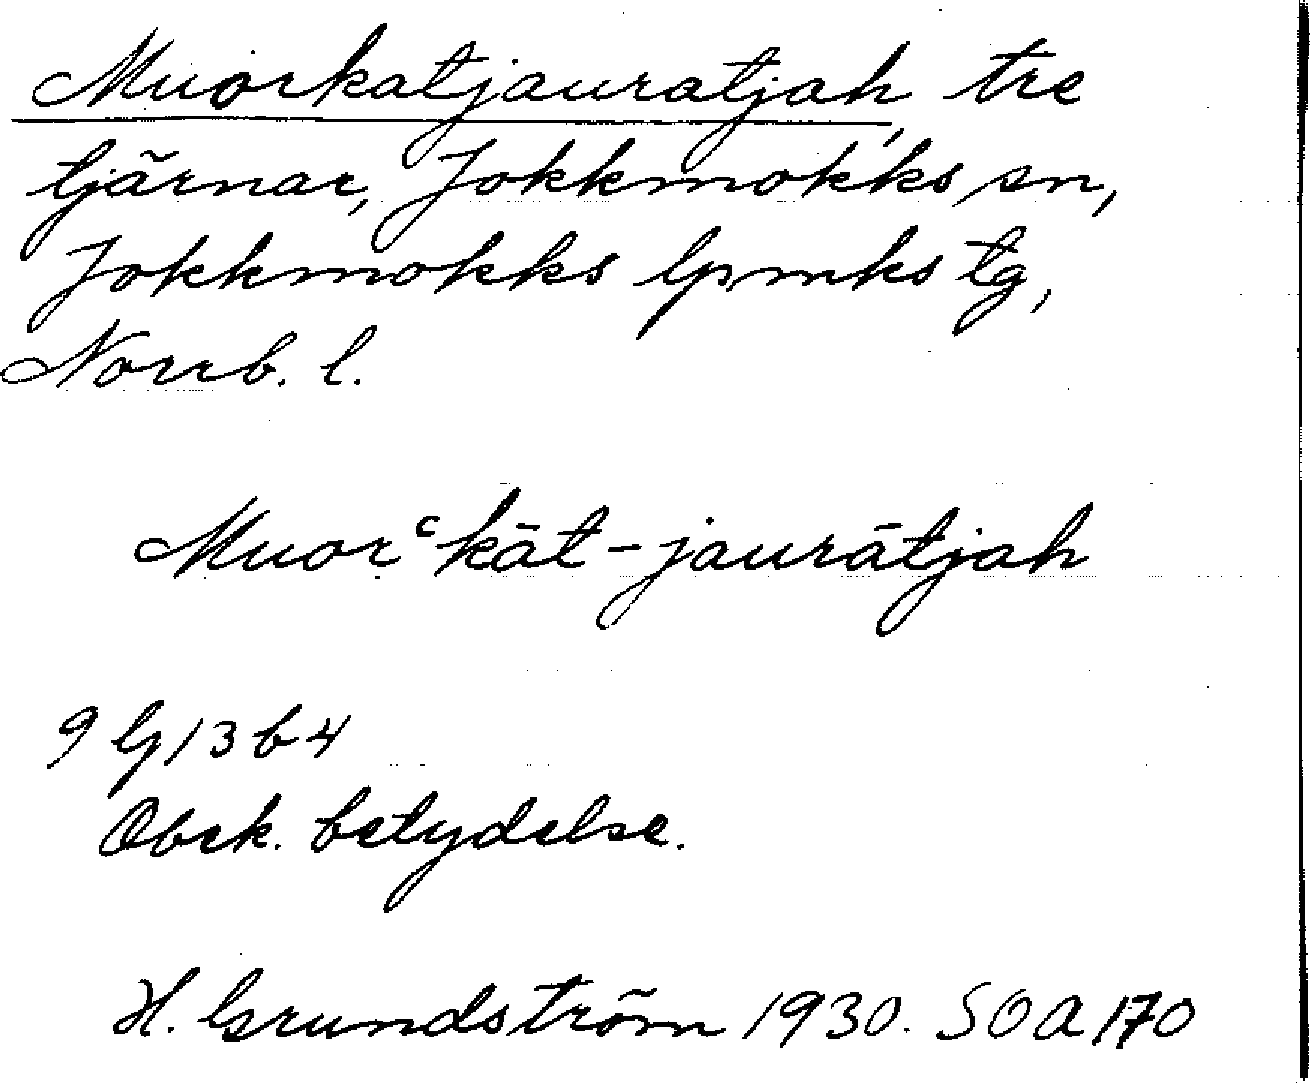 Muorkatjauratjah, tre
tjärnar, Jokkmokks sn,
Jokkmokks lpmks tg,
Norrb. l.
Muorʿkāt-jaurātjah
9 G/3 b 4
Obek. betydelse.
H. Grundström 1930. SOA 170